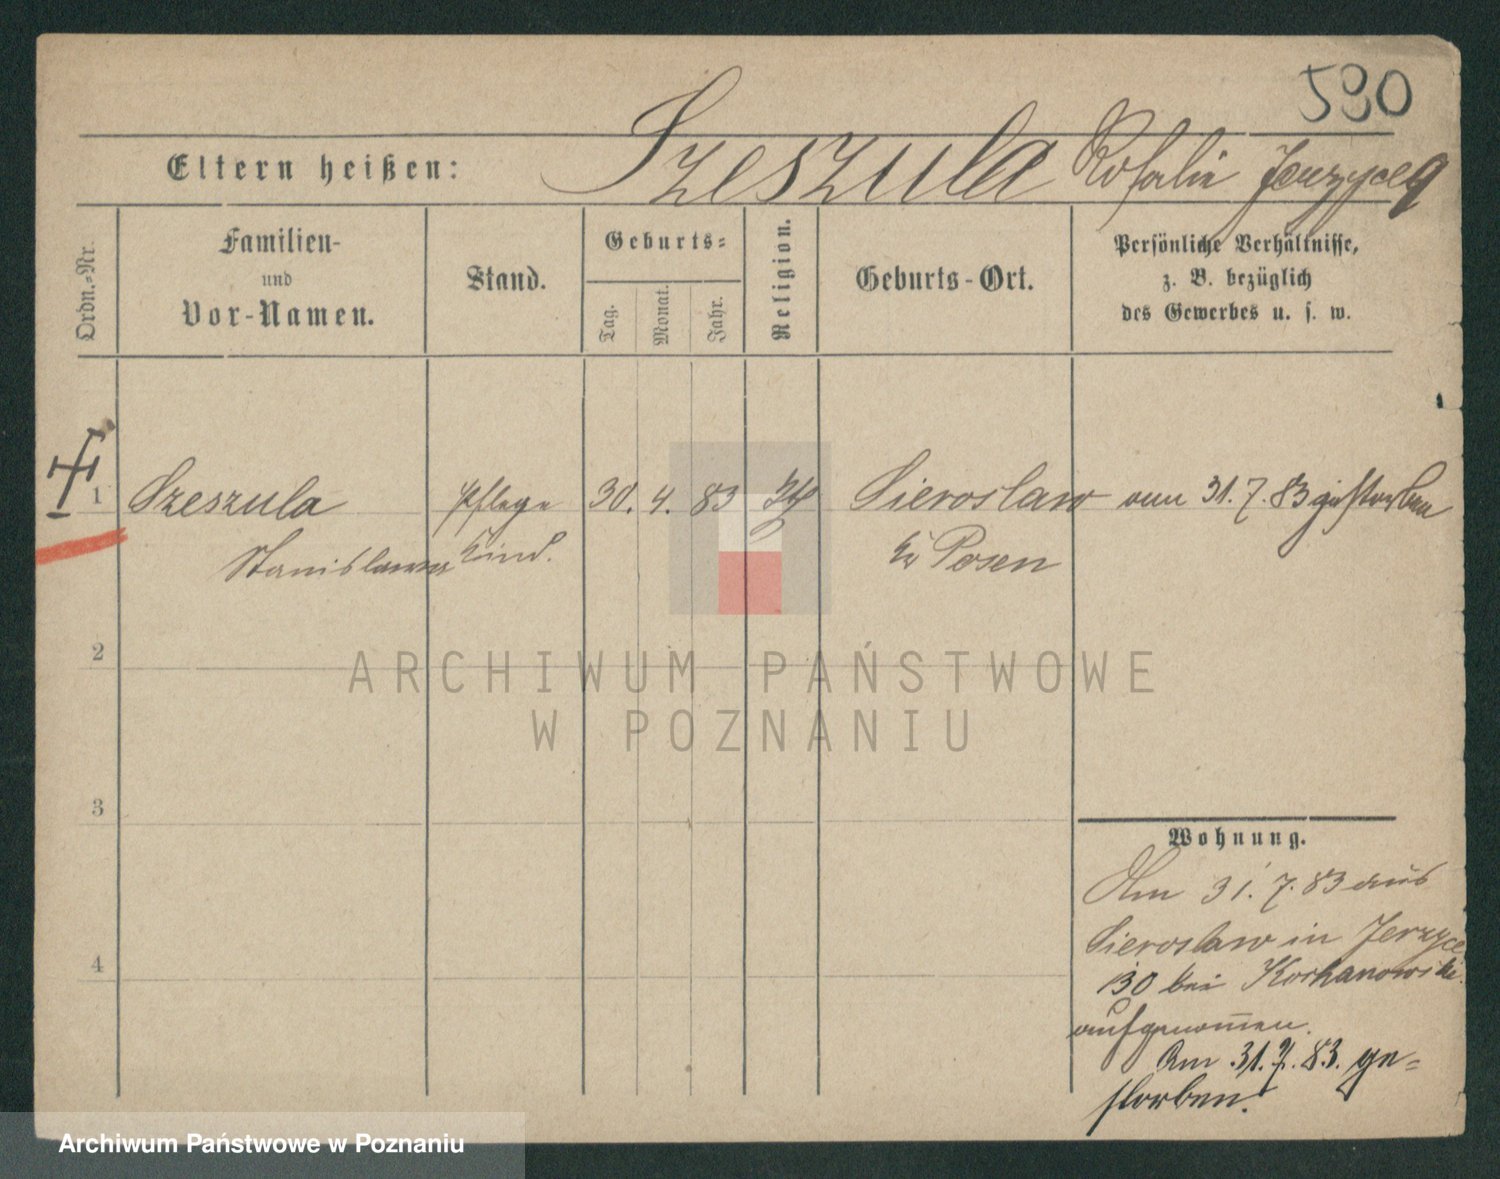 590
Eltern heißen: Szeszula Rosalie Jerzyce
Ordn.=Nr.
Familien-
und
Vor-Namen.
Stand.
Geburts=
Tag.
Monat.
Jahr.
Religion.
Geburts-Ort.
Persönliche Verhältnisse,
z. B. bezüglich
des Gewerbes u. s. w.
1 Szeszula Pflege 30. 4. 83 Sieroslaw am 31. 7. 83 gestorben
Stanislawa Kind. Posen
2
ARCHIWUM PAŃSTWOWE
W POZNANIU
3
Wohnung.
Am 31. 7. 83 aus
Sieroslaw in Jerzyce
130 bei Kochanowski
4
aufgenom̅en.
Am 31. 7. 83. ge=
storben.
Archiwum Państwowe w Poznaniu